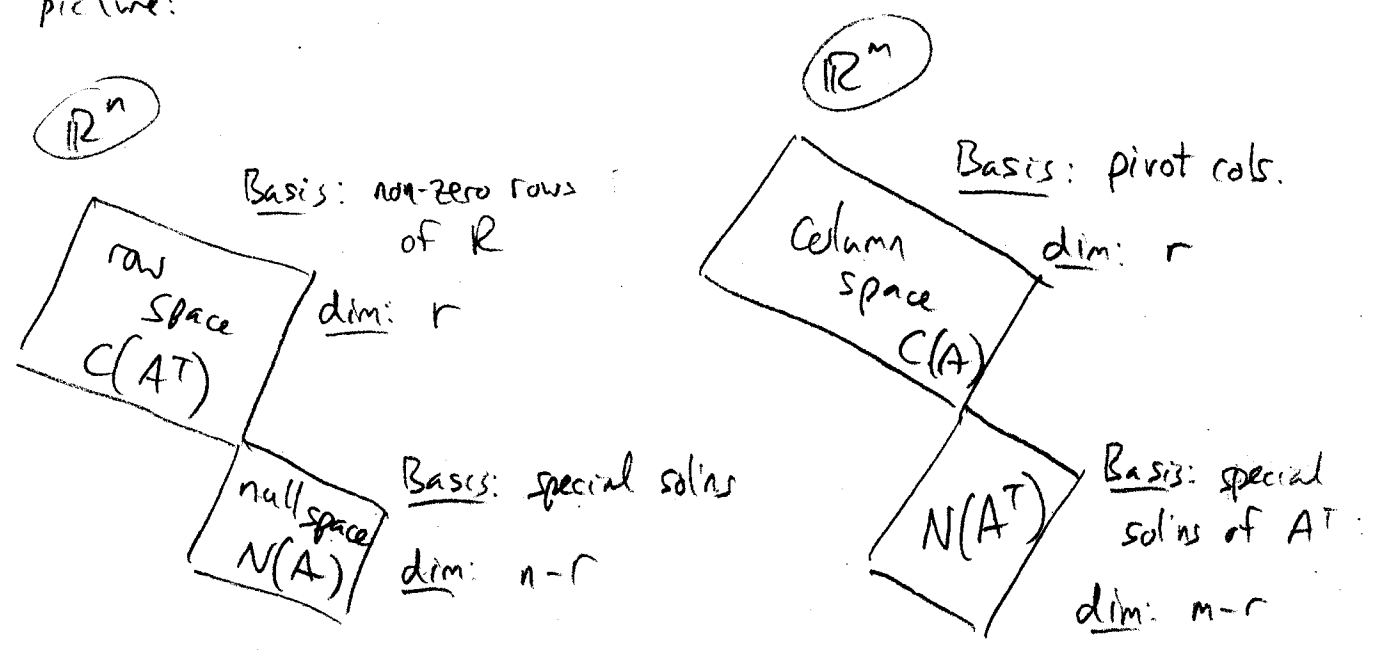 picture:
ℝⁿ
Basis: non-zero rows
of R
row
space
C(Aᵀ)
dim: r
nullspace
N(A)
Basis: special sol'ns
dim: n-r
ℝᵐ
Basis: pivot cols.
Column
space
C(A)
dim: r
N(Aᵀ)
Basis: special
sol'ns of Aᵀ
dim: m-r